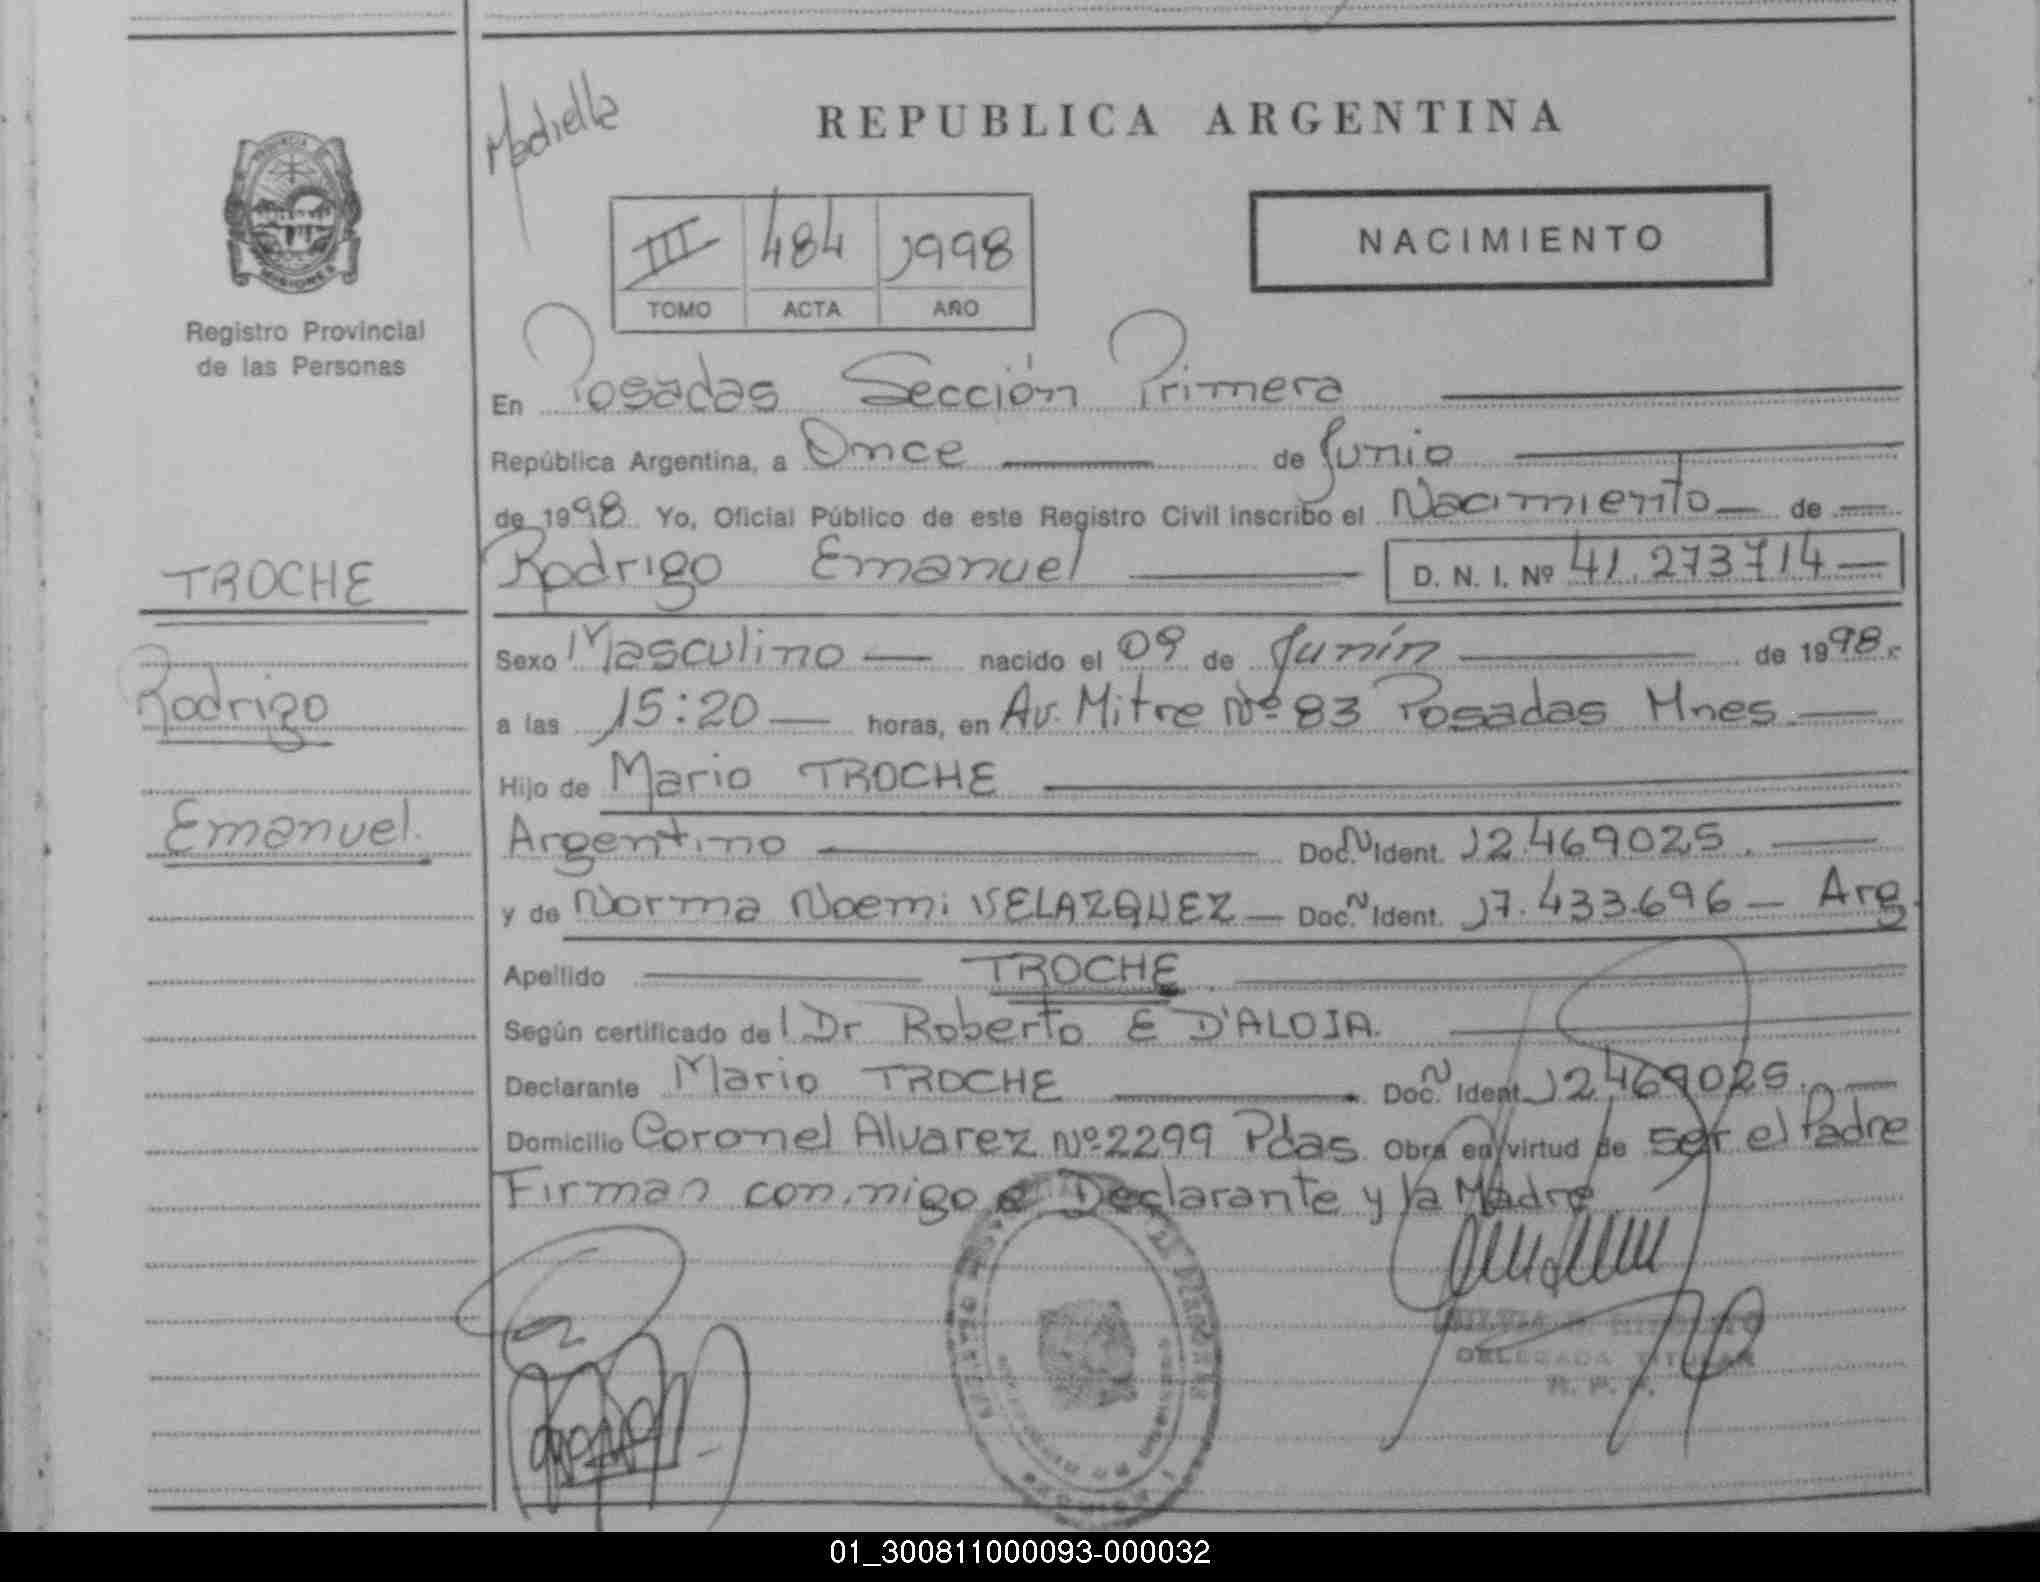 Madiella
REPUBLICA ARGENTINA
PROVINCIA
MISIONES
Registro Provincial
de las Personas
III 484 1998
TOMO ACTA AÑO
NACIMIENTO
En Posadas Sección Primera
República Argentina, a Once de Junio
de 1998 Yo, Oficial Público de este Registro Civil inscribo el Nacimiento de
TROCHE
Rodrigo Emanuel D. N. I. Nº 41.273714
Sexo Masculino nacido el 09 de Junín de 1998.
Rodrigo
a las 15:20 horas, en Av. Mitre Nº 83 Posadas Mnes.
Hijo de Mario TROCHE
Emanuel.
Argentino Doc. N Ident. 12.469025.
y de Norma Noemi VELAZQUEZ Doc. N Ident. 17.433.696 Arg.
Apellido TROCHE
Según certificado del Dr Roberto E D'ALOIA.
Declarante Mario TROCHE Doc. N Ident. 12.469025.
Domicilio Coronel Alvarez Nº 2299 Pdas. Obra en virtud de ser el Padre
Firman con.migo e Declarante y la Madre
DELEGADA TITULAR
R. P. P.
01_300811000093-000032